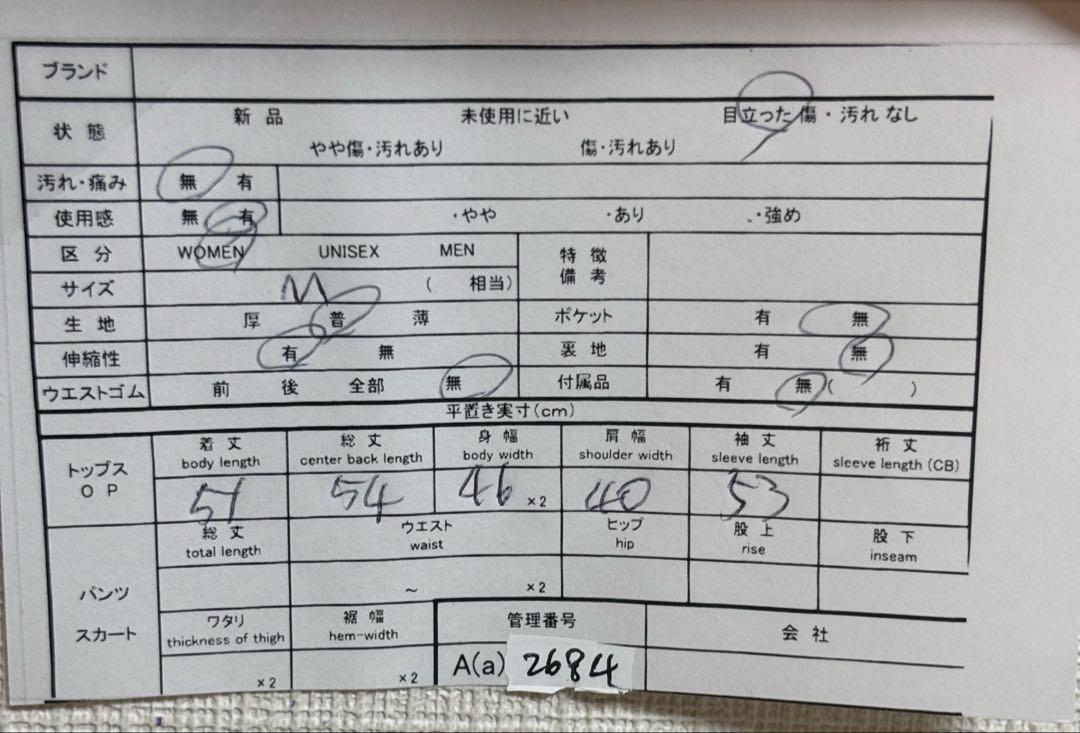 ブランド
状態 新品 未使用に近い 目立った傷・汚れなし
やや傷・汚れあり 傷・汚れあり
汚れ・痛み 無 有
使用感 無 有 ・やや ・あり ・強め
区分 WOMEN UNISEX MEN 特徴
備考
サイズ M ( 相当)
生地 厚 普 薄 ポケット 有 無
伸縮性 有 無 裏地 有 無
ウエストゴム 前 後 全部 無 付属品 有 無( )
平置き実寸(cm)
トップス
OP
着丈 総丈 身幅 肩幅 袖丈 裄丈
body length center back length body width shoulder width sleeve length sleeve length (CB)
51 54 46 ×2 40 53
パンツ
スカート
総丈 ウエスト ヒップ 股上 股下
total length waist hip rise inseam
~ ×2
ワタリ 裾幅 管理番号 会社
thickness of thigh hem-width
×2 ×2 A(a) 2684